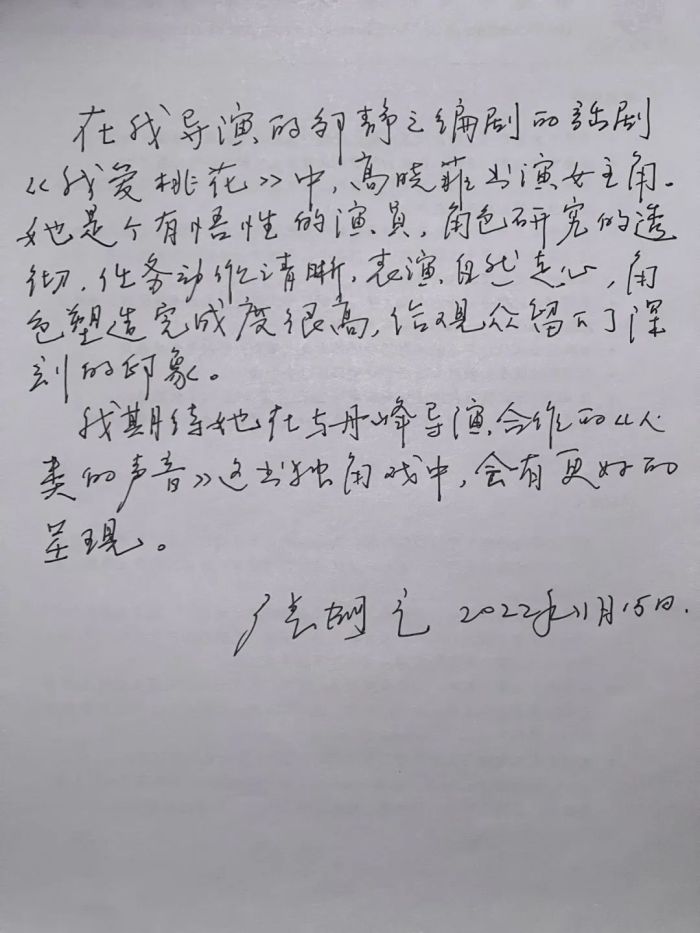 在我导演的邹静之编剧的话剧
《我爱桃花》中，高晓菲出演女主角。
她是个有悟性的演员，角色研究的透
彻，任务动作清晰，表演自然走心，角
色塑造完成度很高，给观众留下了深
刻的印象。
我期待她在与丹峰导演合作的《人
类的声音》这出独角戏中，会有更好的
呈现。
2022年11月15日.